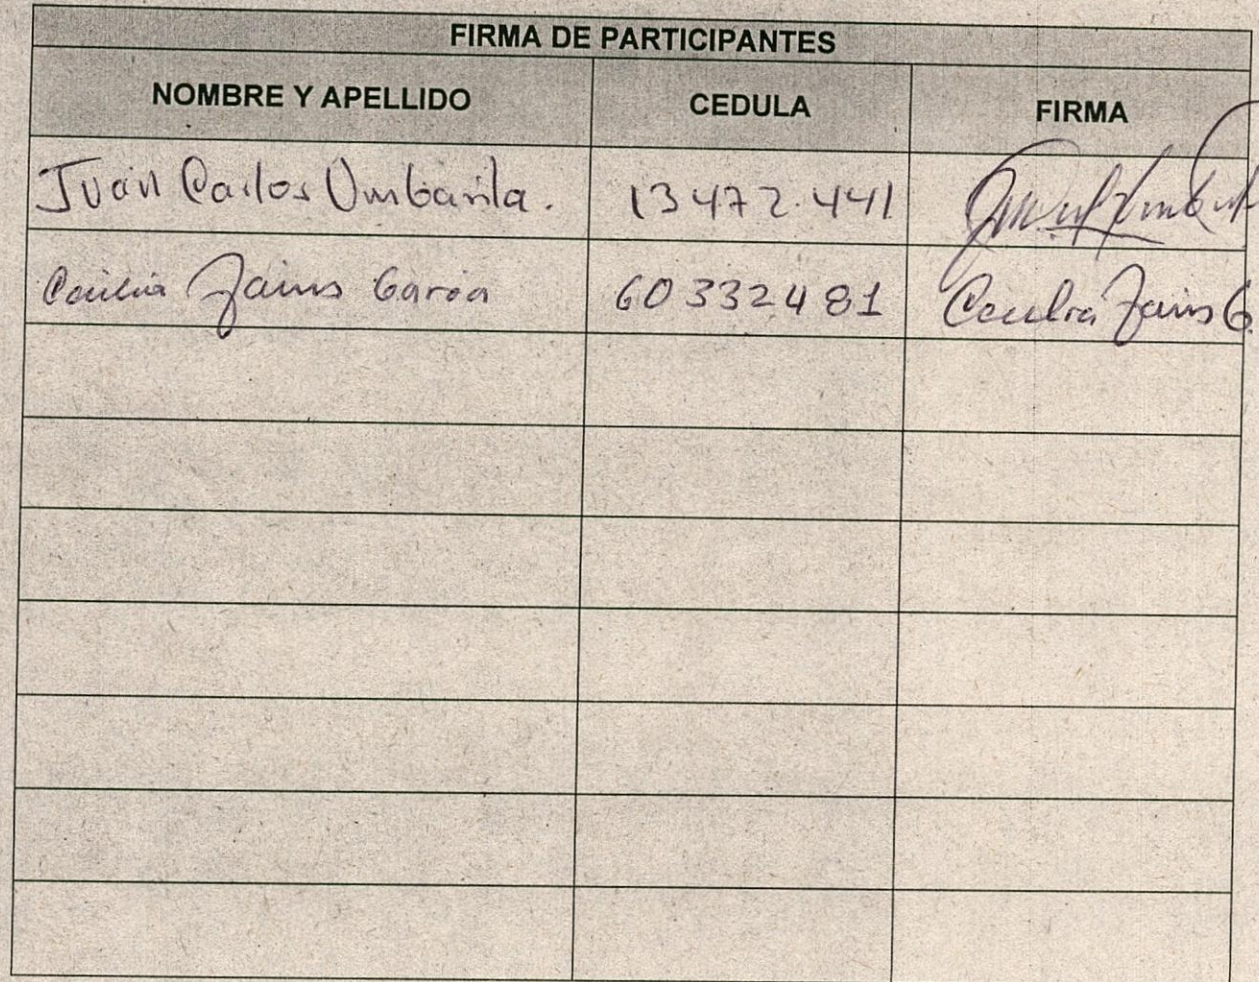 FIRMA DE PARTICIPANTES
NOMBRE Y APELLIDO CEDULA FIRMA
Juan Carlos Umbarila. 13472.441
Cecilia Jaims Garcia 60332481 Cecilia Jaims G.